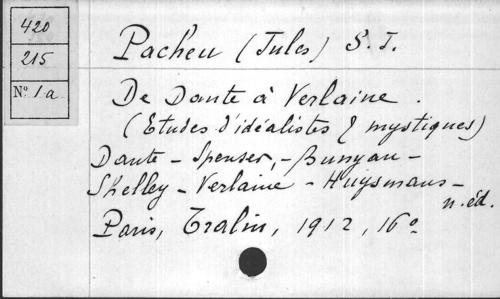 420
215
Nº 1a
Pacheu (Jules) S. J.
De Dante à Verlaine.
(Etudes d'idéalistes & mystiques)
Dante - Spenser, - Bunyan -
Shelley - Verlaine - Huysmans -
n. éd.
Paris, Tralin, 1912, 16º